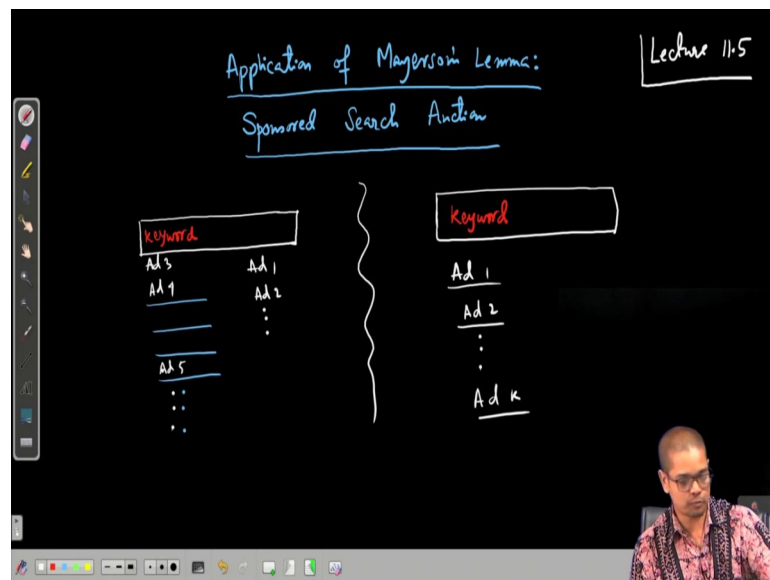 Application of Myerson's Lemma:
Sponsored Search Auction
Lecture 11.5
keyword
Ad 3
Ad 4
Ad 5
Ad 1
Ad 2
keyword
Ad 1
Ad 2
Ad k